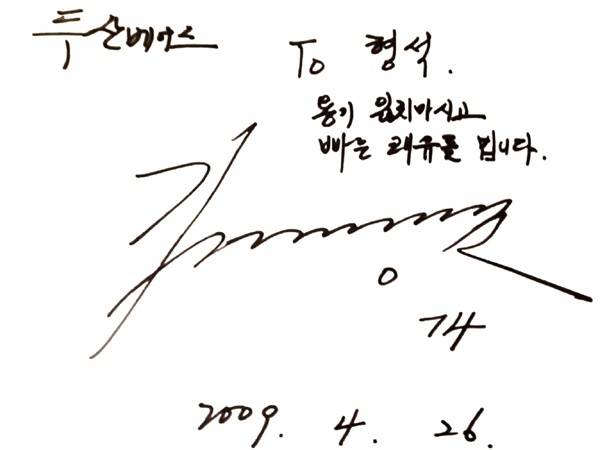 두산베어스
To 형석.
용기 잃지마시고
빠른 쾌유를 빕니다.
74
2009. 4. 26.